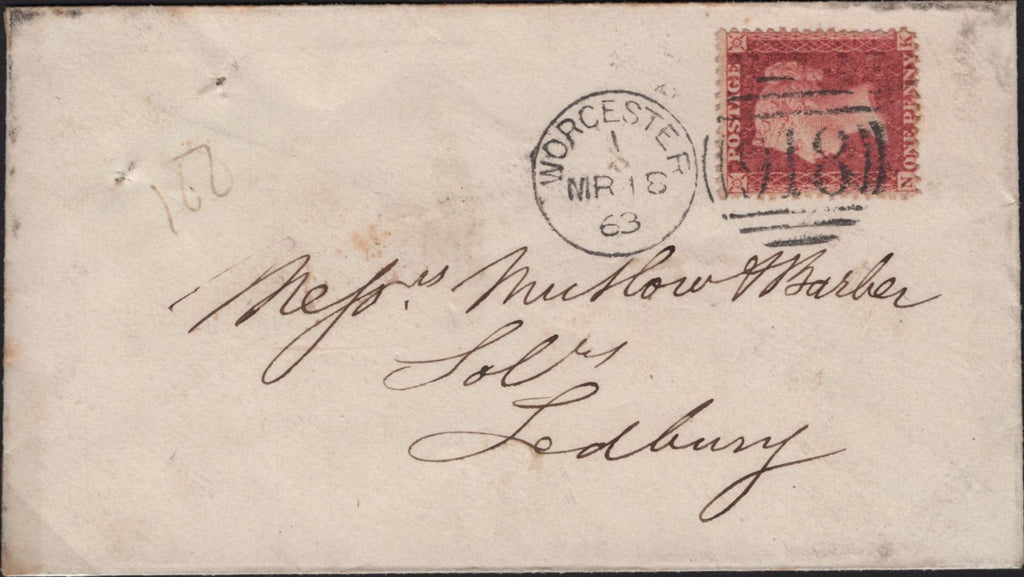 POSTAGE
ONE PENNY
N
K
WORCESTER
1
MR 18
63
918
221
Messrs Mutlow & Barber
Solrs
Ledbury